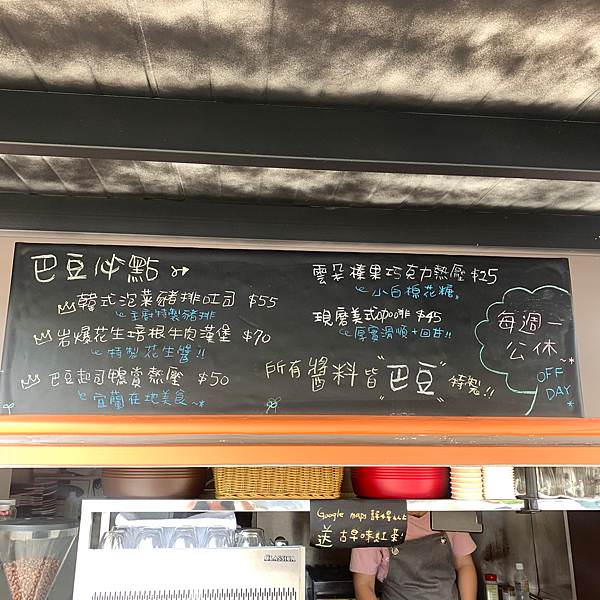 巴豆必點
韓式泡菜豬排吐司 $55
主廚特製豬排
岩爆花生培根牛肉漢堡 $70
特製花生醬!!
巴豆起司鴨賞熱壓 $50
宜蘭在地美食~*
雲朵榛果巧克力熱壓 $25
小白棉花糖。
現磨美式 $45
厚實滑順+回甘!!
所有醬料皆"巴豆"特製!!
每週一
公休~*
OFF
DAY
Google maps
送 古早味紅茶
CLASSICA